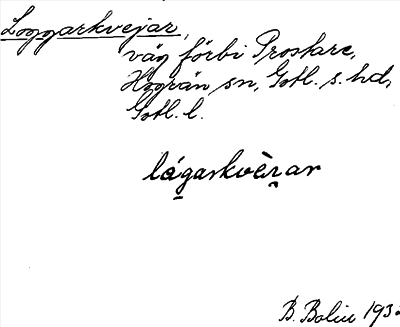 Loggarkvejar,
väg förbi Proskarc,
Hogrän sn, Gotl. s. hd,
Gotl. l.
lágarkvèrar
B. Bolin 193